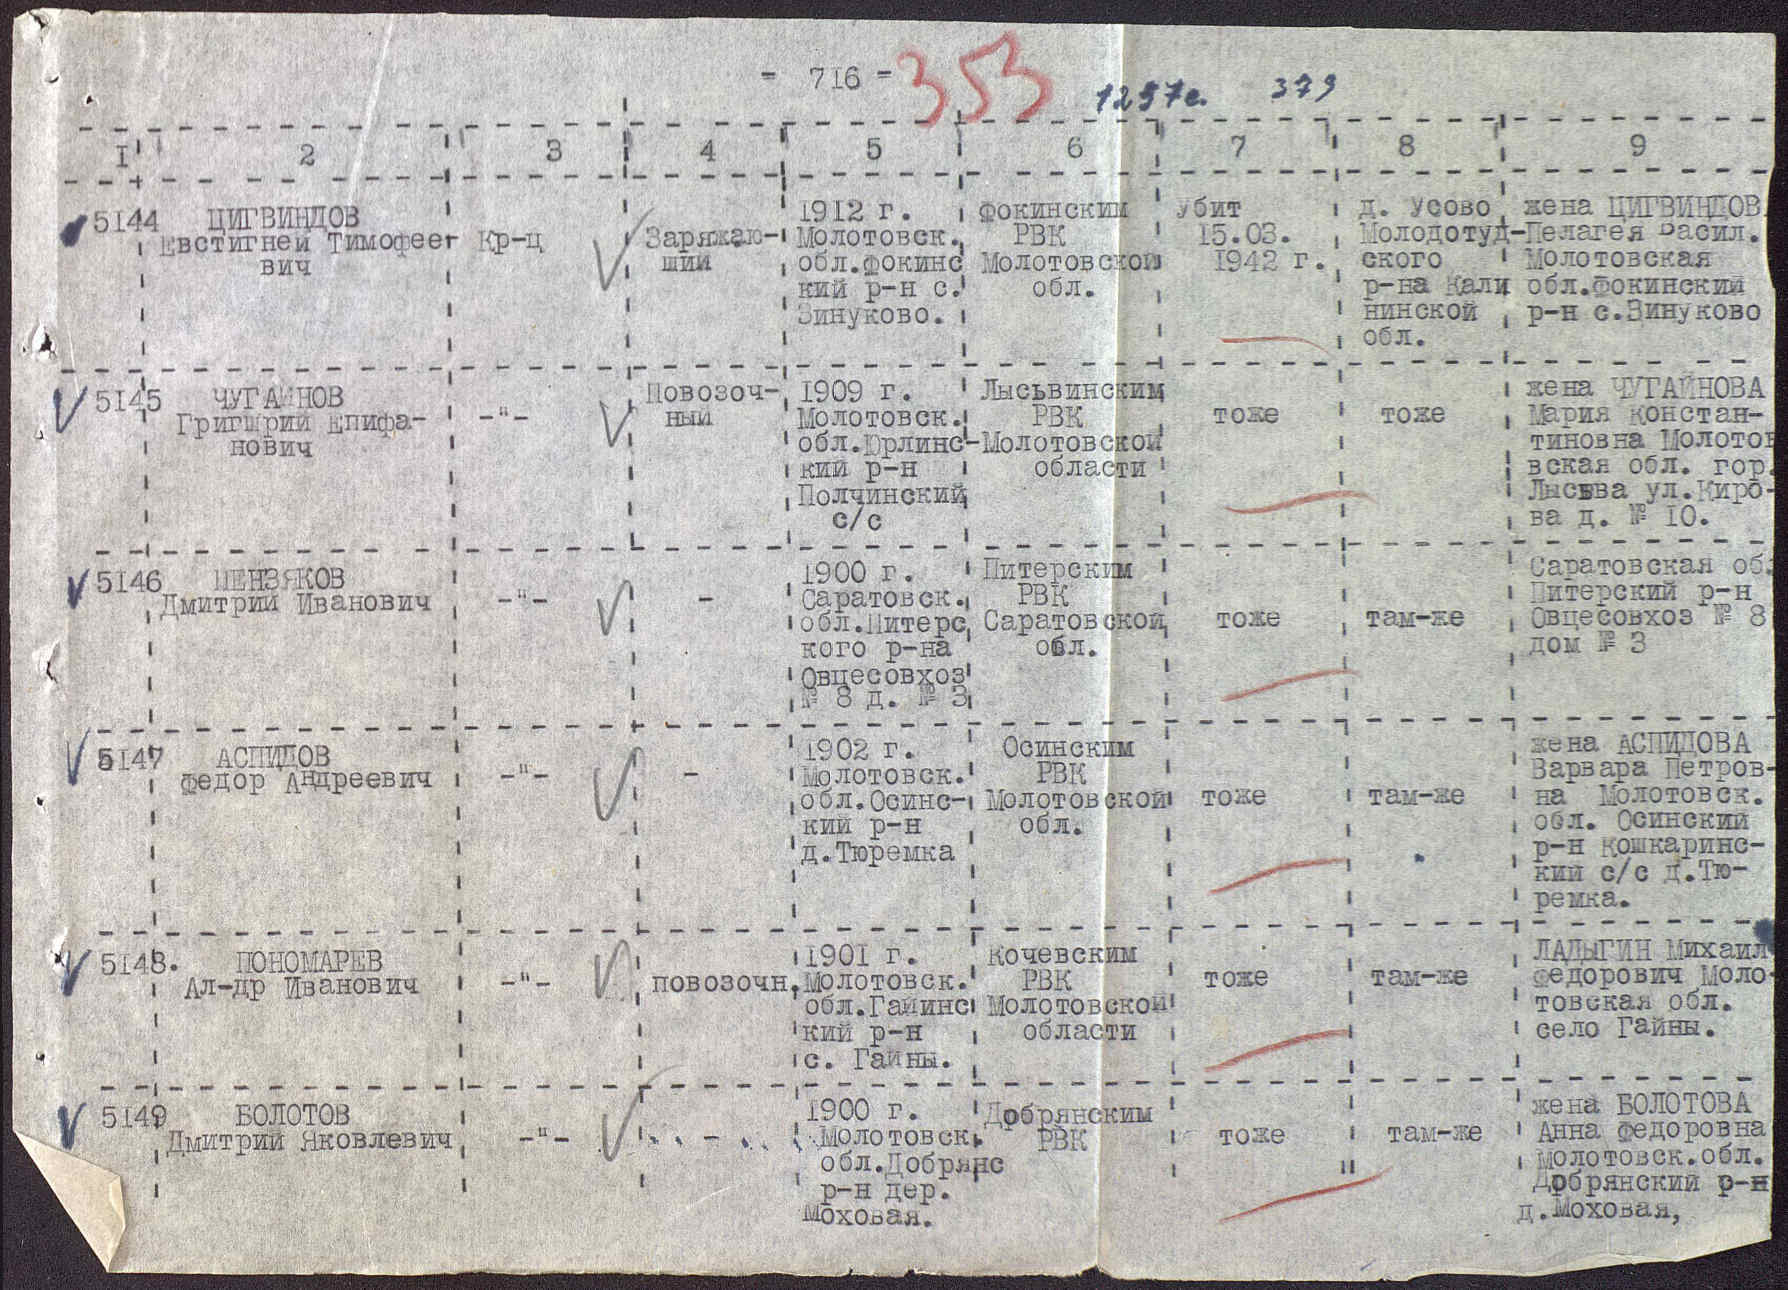 - 716 -
353
1257с. 379
I 2 3 4 5 6 7 8 9
5144 ЦИГВИНДОВ
Евстигней Тимофее-
вич
Кр-ц
Заряжаю-
щий
1912 г.
Молотовск.
обл.Фокинс
кий р-н с.
Зинуково.
Фокинским
РВК
Молотовской
обл.
Убит
15.03.
1942 г.
д. Усово
Молодотуд-
ского
р-на Кали
нинской
обл.
жена ЦИГВИНДОВ
Пелагея Васил.
Молотовская
обл.Фокинский
р-н с.Зинуково
5145 ЧУГАЙНОВ
Григорий Епифа-
нович
-"-
Повозоч-
ный
1909 г.
Молотовск.
обл.Юрлинс-
кий р-н
Полчинский
с/с
Лысьвинским
РВК
Молотовской
области
тоже
тоже
жена ЧУГАЙНОВА
Мария Констан-
тиновна Молотов
вская обл. гор.
Лысьва ул.Киро-
ва д. № 10.
5146 ПЕНЗЯКОВ
Дмитрий Иванович
-"-
-
1900 г.
Саратовск.
обл.Питерс
кого р-на
Овцесовхоз
№ 8 д. № 3
Питерским
РВК
Саратовской
обл.
тоже
там-же
Саратовская об.
Питерский р-н
Овцесовхоз № 8
дом № 3
5147 АСПИДОВ
Федор Андреевич
-"-
-
1902 г.
Молотовск.
обл.Осинс-
кий р-н
д.Тюремка
Осинским
РВК
Молотовской
обл.
тоже
там-же
жена АСПИДОВА
Варвара Петров-
на Молотовск.
обл. Осинский
р-н Кошкаринс-
кий с/с д.Тю-
ремка.
5148. ПОНОМАРЕВ
Ал-др Иванович
-"-
повозочн.
1901 г.
Молотовск.
обл.Гайинс
кий р-н
с. Гайны.
Кочевским
РВК
Молотовской
области
тоже
там-же
ЛАДЫГИН Михаил
Федорович Моло-
товская обл.
село Гайны.
5149 БОЛОТОВ
Дмитрий Яковлевич
-"-
-
1900 г.
Молотовск.
обл.Добрянс
р-н дер.
Моховая.
Добрянским
РВК
тоже
там-же
жена БОЛОТОВА
Анна Федоровна
Молотовск.обл.
Добрянский р-н
д.Моховая,